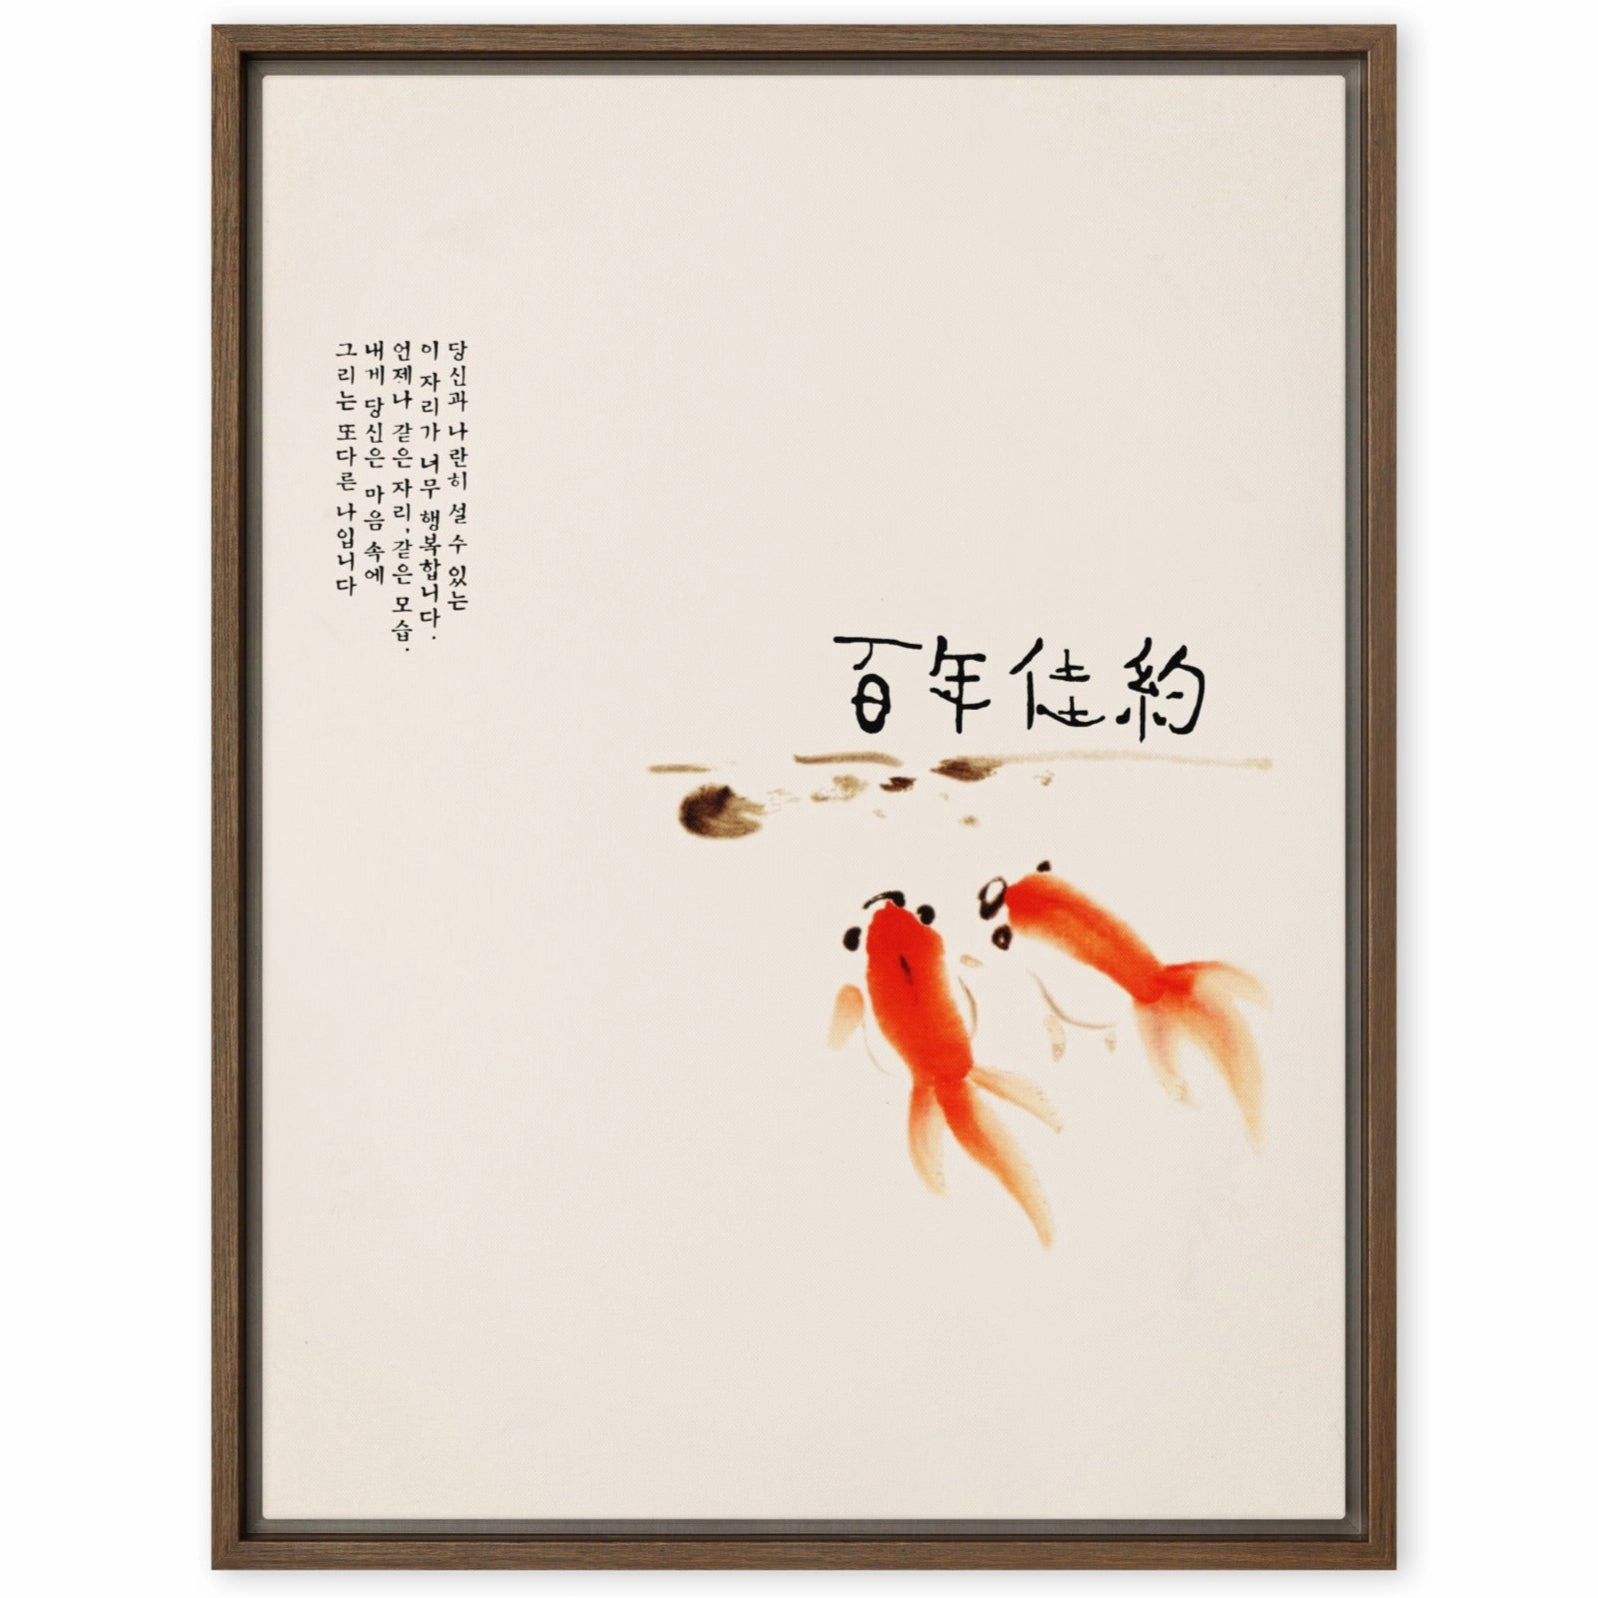 당신과 나란히 설 수 있는
이 자리가 너무 행복합니다.
언제나 같은 자리, 같은 모습.
내게 당신은 마음 속에
그리는 또다른 나입니다
百年佳約